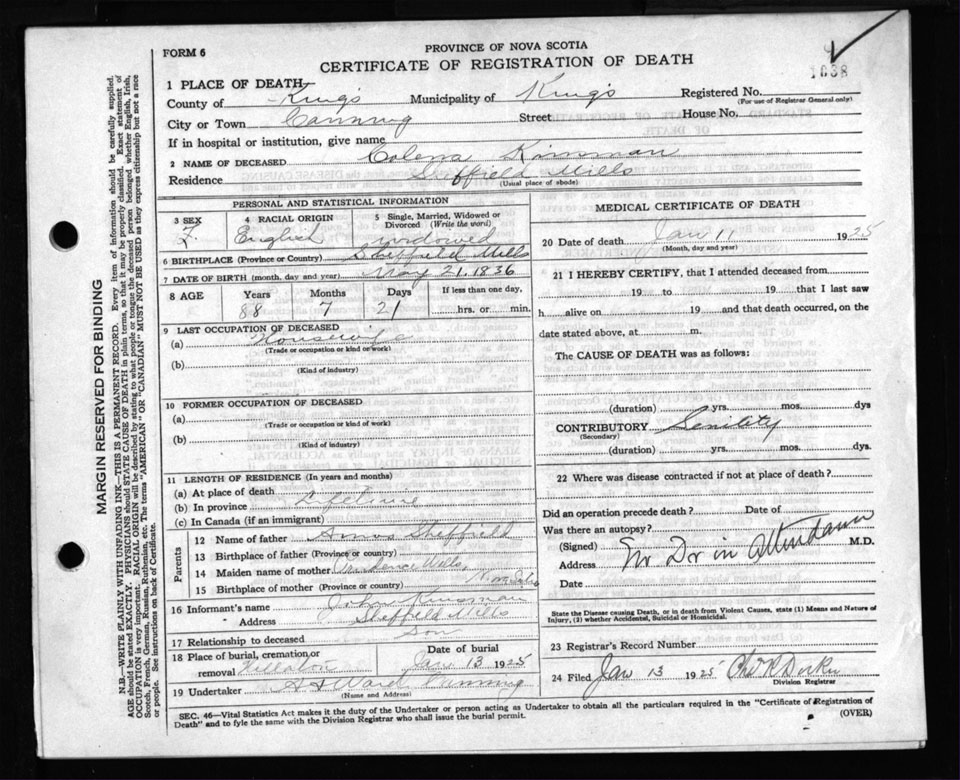 FORM 6
PROVINCE OF NOVA SCOTIA
CERTIFICATE OF REGISTRATION OF DEATH
1038
1 PLACE OF DEATH—
County of Kings Municipality of Kings Registered No.
(For use of Registrar General only)
City or Town Canning Street House No.
If in hospital or institution, give name
2 NAME OF DECEASED Kinsman
Residence Sheffield Mills
(Usual place of abode)
PERSONAL AND STATISTICAL INFORMATION
3 SEX 4 RACIAL ORIGIN 5 Single, Married, Widowed or Divorced (Write the word)
F. English widowed
6 BIRTHPLACE (Province or Country) Sheffield Mills
7 DATE OF BIRTH (month, day and year) May 21, 1836
8 AGE Years Months Days If less than one day,
88 7 21 hrs. or min.
9 LAST OCCUPATION OF DECEASED
(a) Housewife
(Trade or occupation or kind of work)
(b)
(Kind of industry)
10 FORMER OCCUPATION OF DECEASED
(a)
(Trade or occupation or kind of work)
(b)
(Kind of industry)
11 LENGTH OF RESIDENCE (In years and months)
(a) At place of death
(b) In province Lifetime
(c) In Canada (if an immigrant)
Parents
12 Name of father Amos Sheffield
13 Birthplace of father (Province or country)
14 Maiden name of mother Prudence Wells
15 Birthplace of mother (Province or country) Nova Scotia
16 Informant's name John Kinsman
" Address Sheffield Mills
17 Relationship to deceased Son
18 Place of burial, cremation or removal Date of burial
Jan 13 1925
19 Undertaker Ward Canning
(Name and Address)
MEDICAL CERTIFICATE OF DEATH
20 Date of death Jan 11 1925
(Month, day and year)
21 I HEREBY CERTIFY, that I attended deceased from
19 to 19 that I last saw
h alive on 19 and that death occurred, on the
date stated above, at m.
The CAUSE OF DEATH was as follows:
(duration) yrs. mos. dys
CONTRIBUTORY Senility
(Secondary)
(duration) yrs. mos. dys.
22 Where was disease contracted if not at place of death?
Did an operation precede death? Date of
Was there an autopsy?
(Signed) M.D.
Address No Dr in attendance
Date
State the Disease causing Death, or in death from Violent Causes, state (1) Means and Nature of Injury, (2) whether Accidental, Suicidal or Homicidal.
23 Registrar's Record Number
24 Filed Jan 13 1925
Division Registrar
SEC. 46—Vital Statistics Act makes it the duty of the Undertaker or person acting as Undertaker to obtain all the particulars required in the "Certificate of Registration of
Death" and to fyle the same with the Division Registrar who shall issue the burial permit.
(OVER)
MARGIN RESERVED FOR BINDING
N.B.—WRITE PLAINLY WITH UNFADING INK—THIS IS A PERMANENT RECORD. Every item of information should be carefully supplied.
AGE should be stated EXACTLY. PHYSICIANS should STATE CAUSE OF DEATH in plain terms, so that it may be properly classified. Exact statement of
OCCUPATION is very important. RACIAL ORIGIN will be described by stating to what people or tongue the deceased person belonged whether English, Irish,
Scotch, French, German, Russian, Ruthenian, etc. The terms "AMERICAN" OR "CANADIAN" MUST NOT BE USED as they express citizenship but not a race
or people. See instructions on back of Certificate.